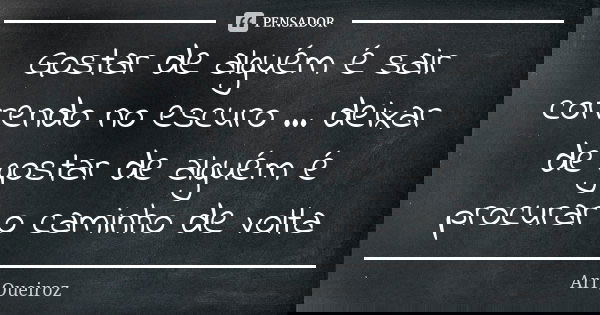 PENSADOR
Gostar de alguém é sair
correndo no escuro ... deixar
de gostar de alguém é
procurar o caminho de volta
Ari Queiroz